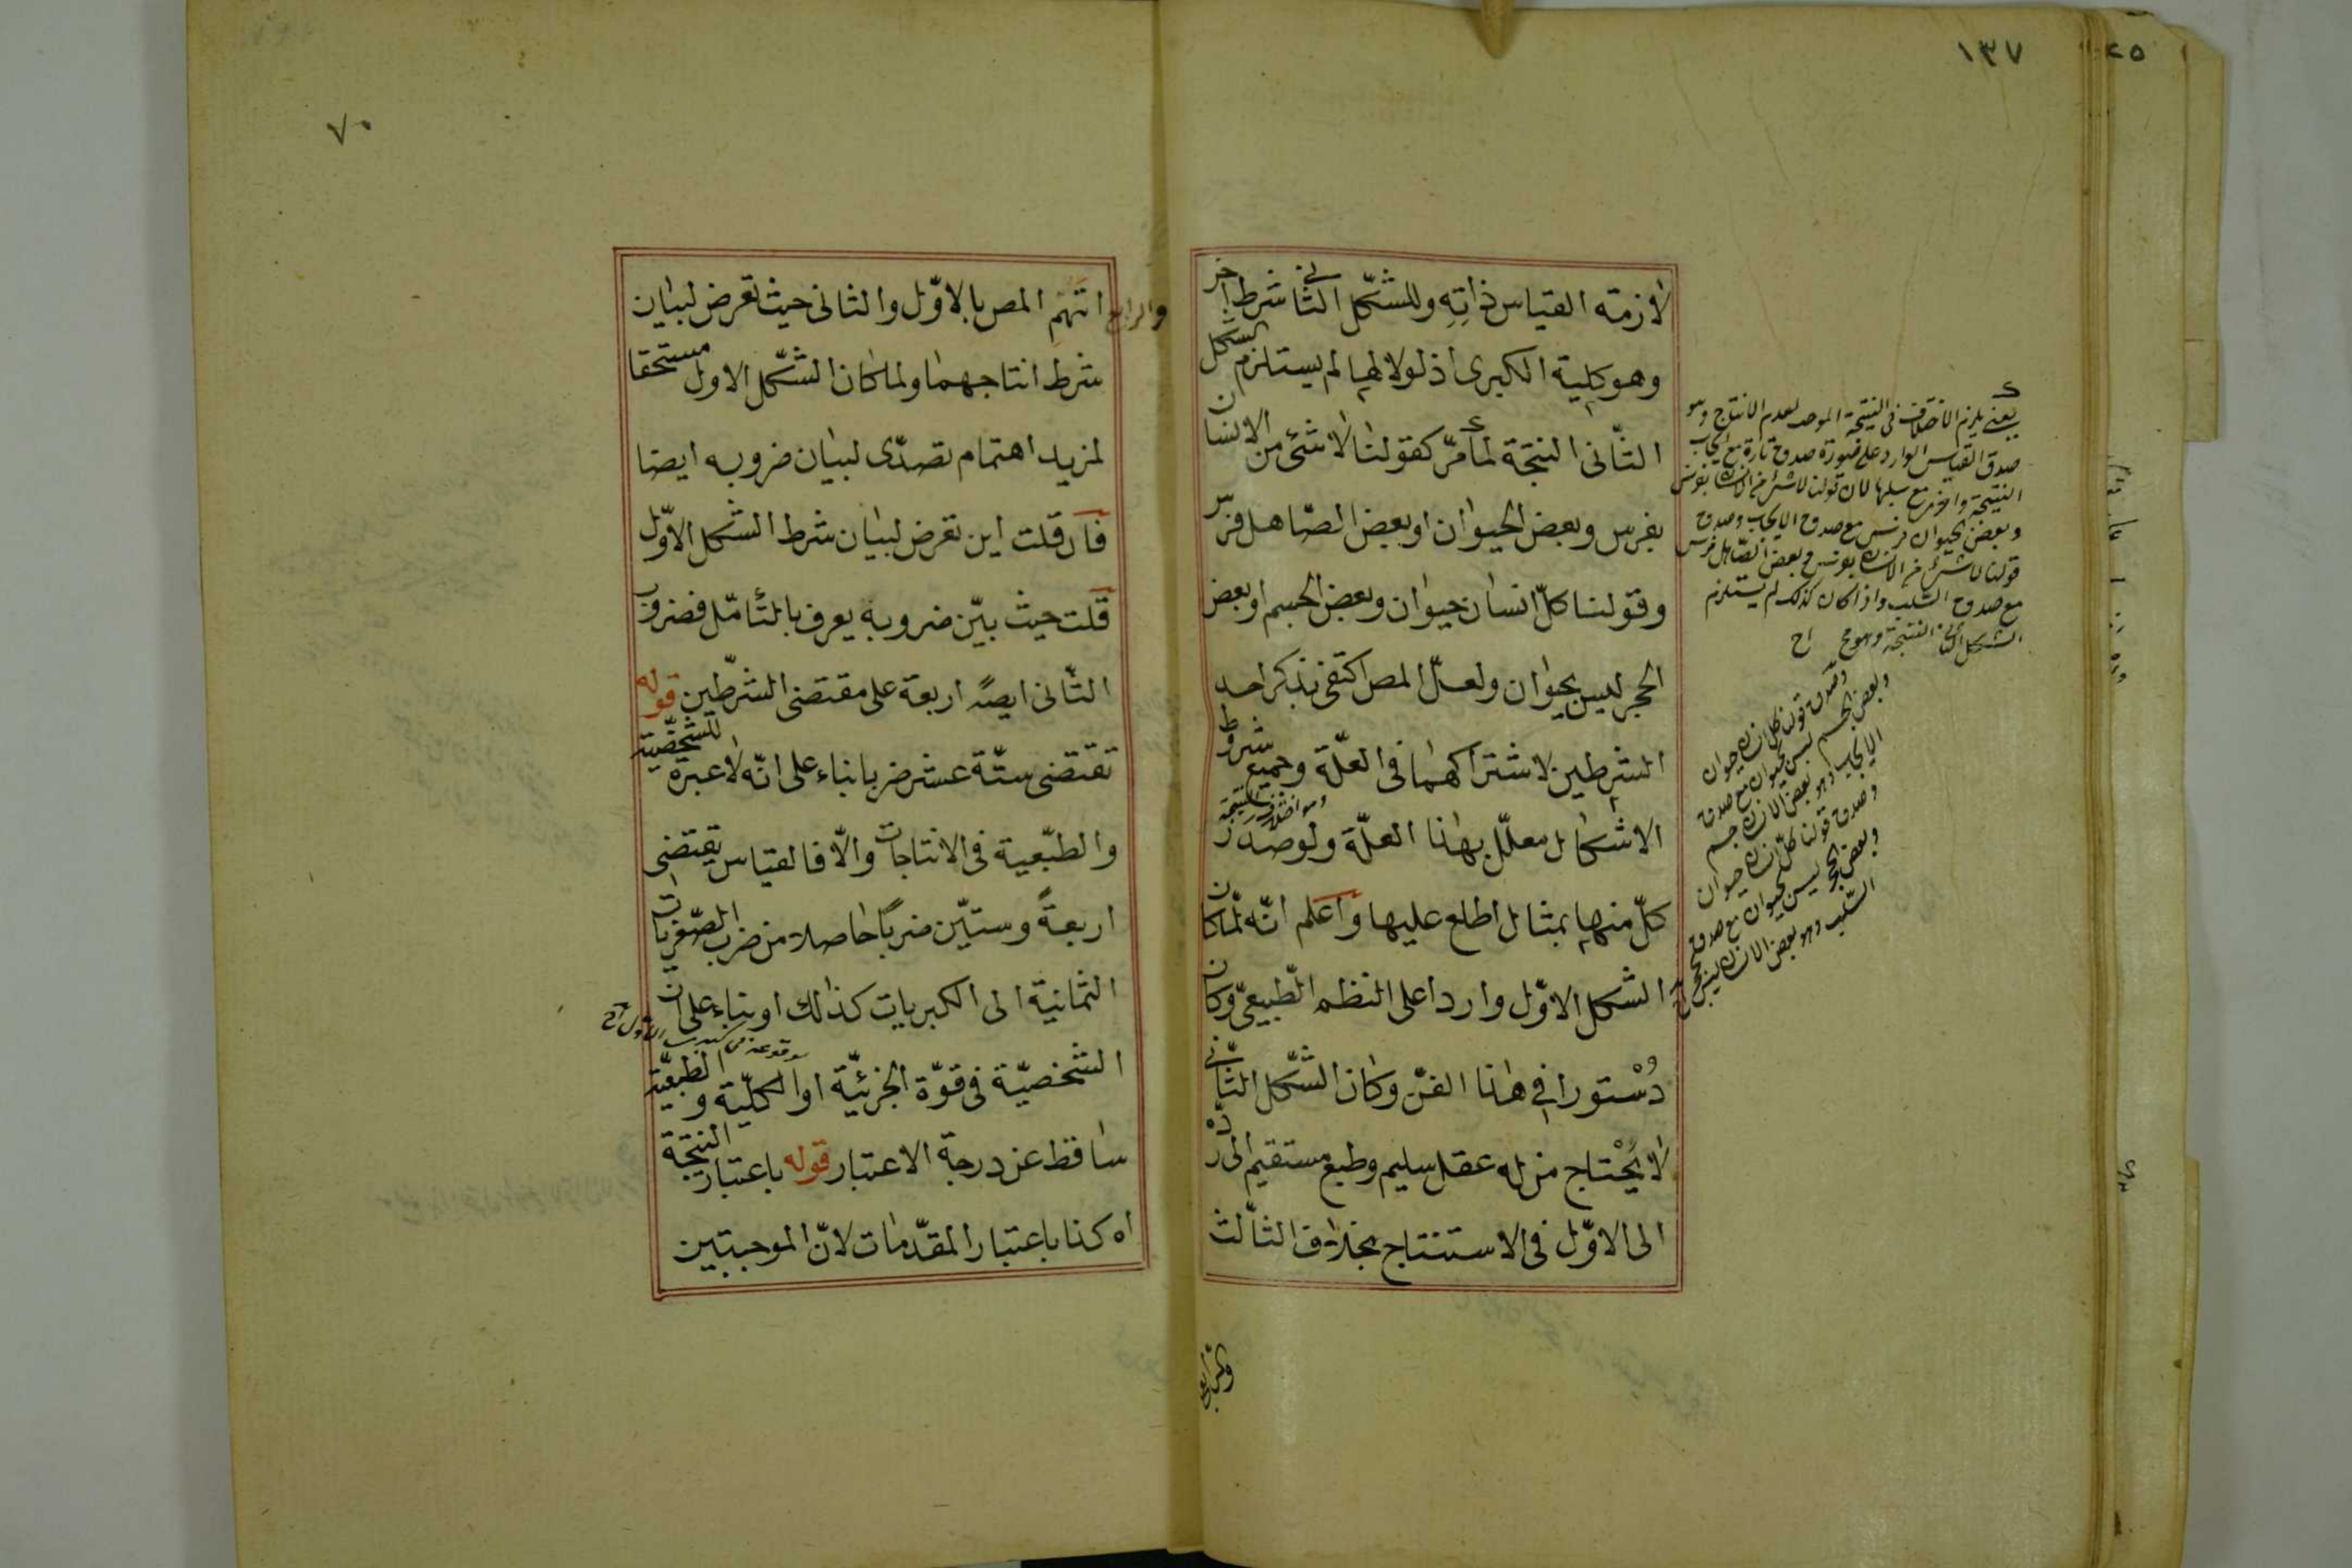 ١٣٧
لازمته القياس ذاتِهِ وللشكل الثانى شرط اٰخر
وهو كلية الكبرى اذ لولاها لم يستلزم الشكل
الثّانى النتجة لما مرّ كقولنا لاشئ من الانسان
بفرس وبعض الحيوان او بعض الصّاهل فرس
وقولنا كلّ انسان حيوان وبعض الجسم او بعض
الحجر ليس بحيوان ولعلّ المص اكتفى بذكر احد
الشرطين لاشتراكهما فى العلّة وجميع شروط
الاشكال معلّل بهذا العلّة ولوصدر
وهو اختلاف النتيجة
كلّ منها بمثال اطلع عليها واعلم انّه لمّا كان
الشكل الاوّل واردا على النظم الطّبيعىّ وكان
دُسْتورا فى هذا الفنّ وكان الشّكل الثّانى
لا يُحْتاج من له عقل سليم وطبع مستقيم الى ردّه
الى الاوّل فى الاستنتاج بخلاف الثّالث
والرابع
يعنى يلزم الاختلاف فى النتيجة الموجب لعدم الانتاج وهو
صدق القياس الوارد على صورة صدق تارة مع ايجاب
النتيجة واخرى مع سلبها لان قولنا لاشئ من الانسان بفرس
وبعض الحيوان فرس مع صدق الايجاب وصدق
قولنا لاشئ من الانسان بفرس وبعض الصّاهل فرس
مع صدق السّلب واذا كان كذلك لم يستلزم
الشكل الثانى النتيجة وهو مح اح
وصدق قولنا كل انسان حيوان
وبعض الجسم ليس بحيوان مع صدق
الايجاب وهو بعض الانسان جسم
وصدق قولنا كلّ انسان حيوان
وبعض الحجر ليس بحيوان مع صدق
السّلب وهو بعض الانسان ليس بحجر
٧٠
والرابع اتهم المص بالاوّل والثانى حيث تعرض لبيان
شرط انتاجهما ولما كان الشّكل الاول مستحقا
لمزيد اهتمام تصدّى لبيان ضروبه ايضا
فان قلت اين تعرض لبيان شرط الشكل الاوّل
قلت حيث بيّن ضروبه يعرف بالتأمّل فضروب
الثّانى ايضً اربعة على مقتضى الشرطين قوله
تقتضى ستّة عشر ضربا بناء على انّه لا عبرة للشّخصّية
والطبّعية فى الانتاجات والّا فالقياس يقتضى
اربعةً وستّين ضربًا حاصلا من ضرب الصّغريات
الثمانية الى الكبريات كذلك او بناء على ان
الشخصيّة فى قوّة الجزئيّة او الكلّية والطبعيّة
ساقط عن درجة الاعتبار قوله باعتبار النتجة
اه كذا باعتبار المقدّمات لانّ الموجبتين